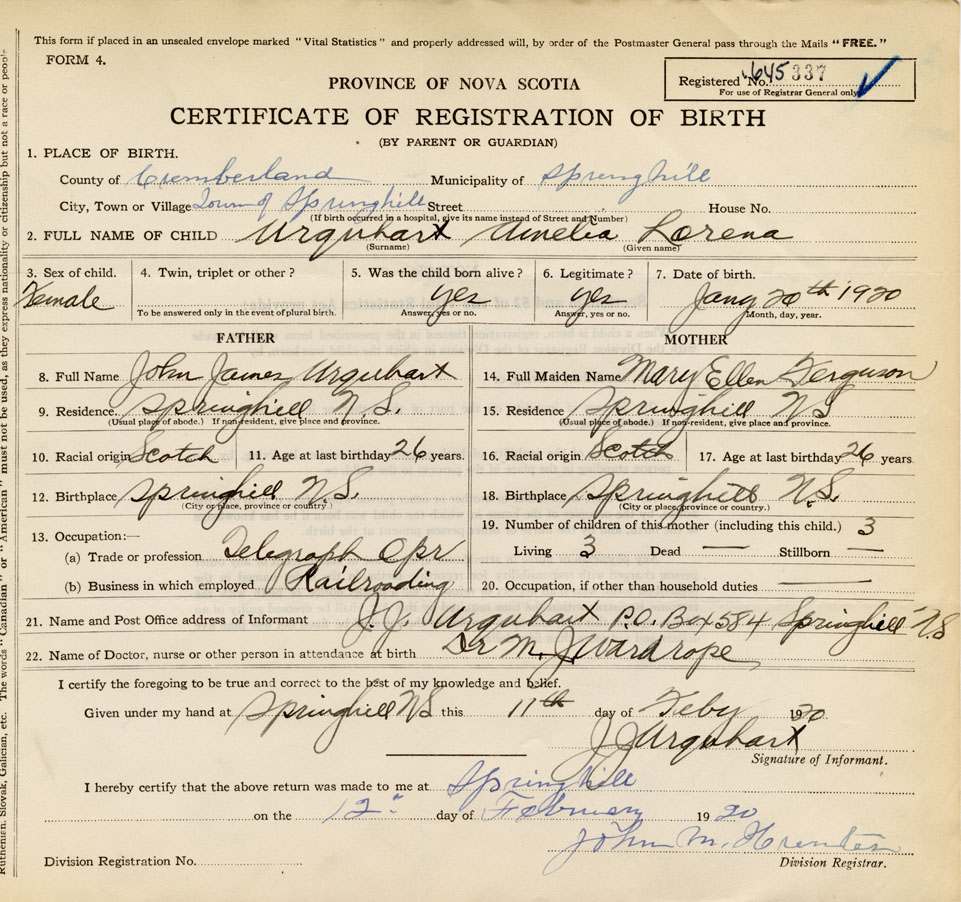 This form if placed in an unsealed envelope marked "Vital Statistics" and properly addressed will, by order of the Postmaster General pass through the Mails "FREE."
FORM 4.
Registered No. 645337
For use of Registrar General only
PROVINCE OF NOVA SCOTIA
CERTIFICATE OF REGISTRATION OF BIRTH
(BY PARENT OR GUARDIAN)
1. PLACE OF BIRTH.
County of Cumberland Municipality of Springhill
City, Town or Village Town of Springhill Street House No.
(If birth occurred in a hospital, give its name instead of Street and Number)
2. FULL NAME OF CHILD Urquhart Amelia Lorena
(Surname) (Given name)
3. Sex of child. 4. Twin, triplet or other? 5. Was the child born alive? 6. Legitimate? 7. Date of birth.
Female yes yes Jany 20th 1920
To be answered only in the event of plural birth. Answer, yes or no. Answer, yes or no. Month, day, year.
FATHER
8. Full Name John James Urquhart
9. Residence. Springhill N.S.
(Usual place of abode.) If non-resident, give place and province.
10. Racial origin Scotch 11. Age at last birthday 26 years.
12. Birthplace Springhill N.S.
(City or place, province or country.)
13. Occupation:—
(a) Trade or profession Telegraph Opr
(b) Business in which employed Railroading
MOTHER
14. Full Maiden Name Mary Ellen Ferguson
15. Residence Springhill NS
(Usual place of abode.) If non-resident, give place and province.
16. Racial origin Scotch 17. Age at last birthday 26 years
18. Birthplace Springhill N.S.
(City or place, province or country.)
19. Number of children of this mother (including this child.) 3
Living 3 Dead — Stillborn —
20. Occupation, if other than household duties —
21. Name and Post Office address of Informant J.J. Urquhart P.O. Box 584 Springhill N.S
22. Name of Doctor, nurse or other person in attendance at birth Dr M. J. Wardrope
I certify the foregoing to be true and correct to the best of my knowledge and belief.
Given under my hand at Springhill NS this 11th day of Feby 1920
J J Urquhart
Signature of Informant.
I hereby certify that the above return was made to me at Springhill
on the 12" day of February 1920
John M. Hunter
Division Registrar.
Division Registration No.
Ruthenian, Slovak, Galician, etc. The words "Canadian" or "American" must not be used, as they express nationality or citizenship but not a race or people